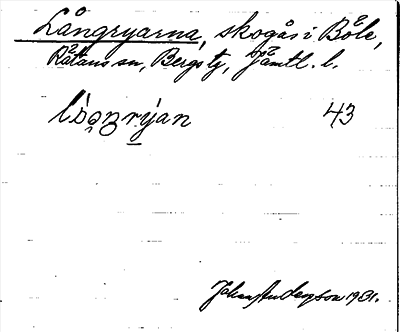 Långryarna, skogås i Böle,
Rätans sn, Bergs tg, Jämtl. l.
43
Johan Anderson 1931.